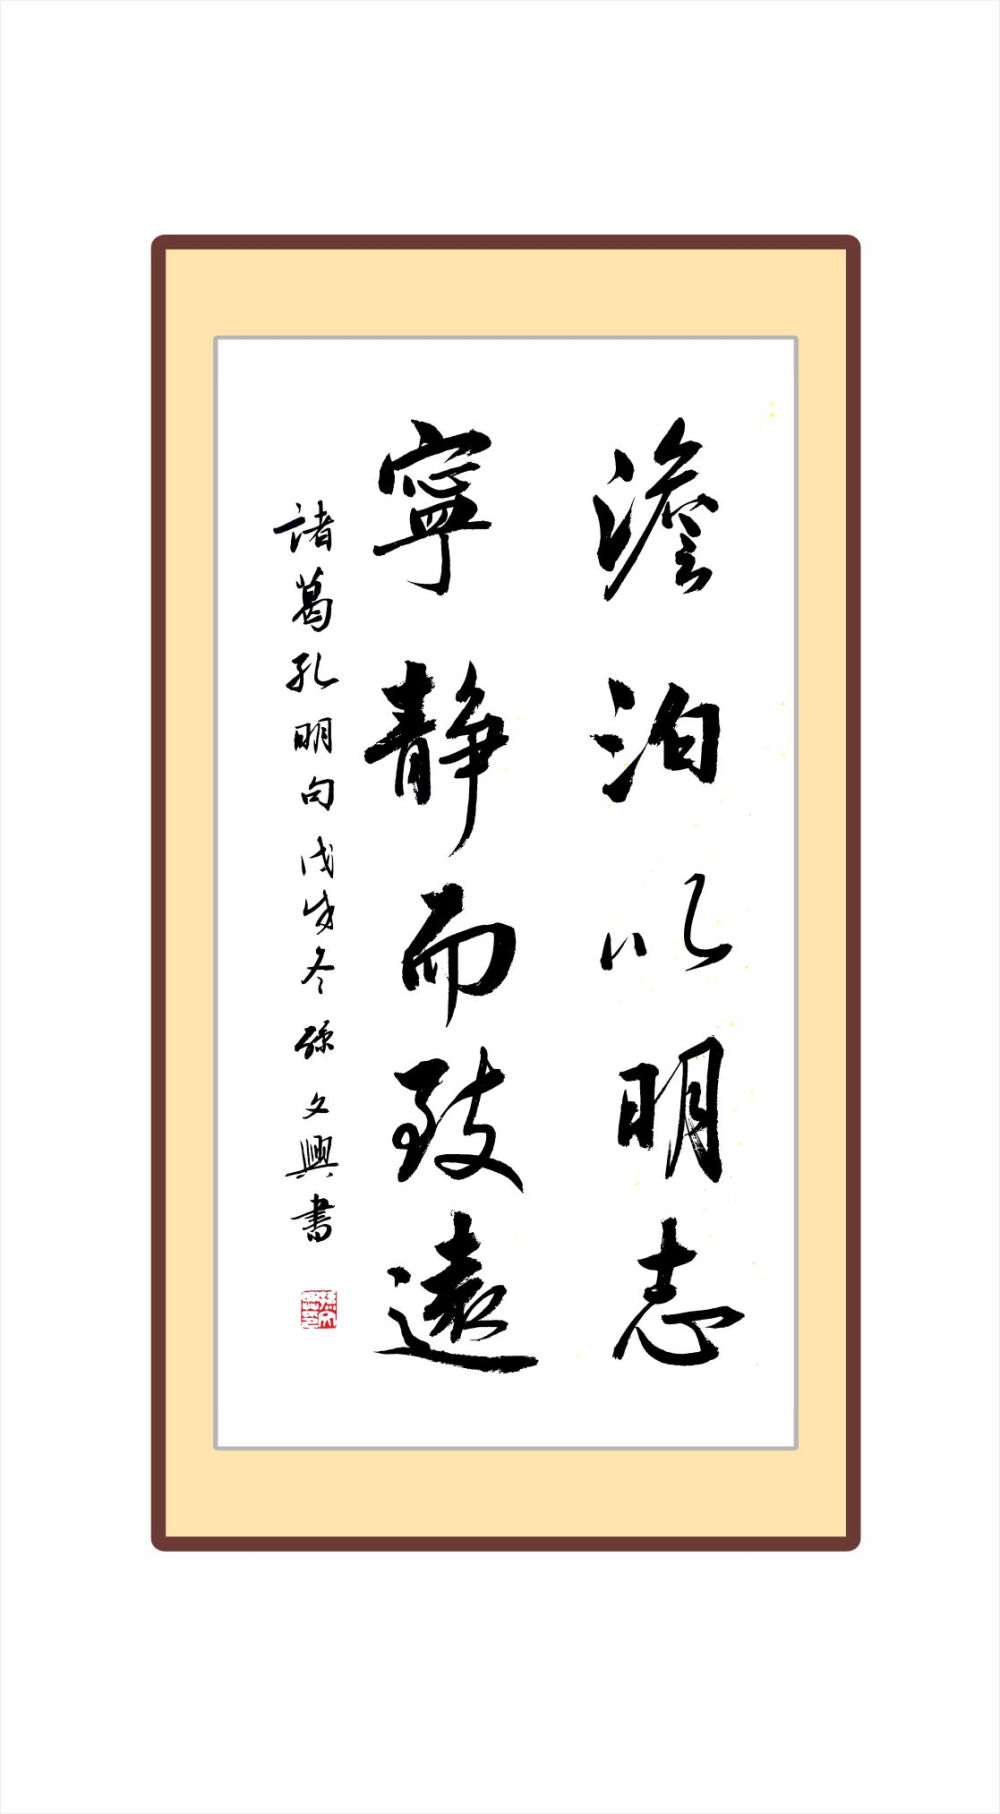 澹泊以明志
寧靜而致遠
諸葛孔明句戊戌冬孫文興書